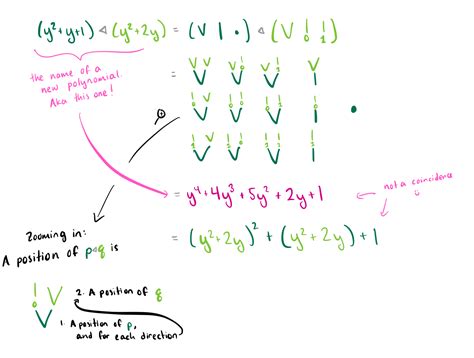 (y²+y+1) ◁ (y²+2y) = (V | •) ◁ (V ! !)
0 1
the name of a
new polynomial.
Aka this one!
= y⁴+4y³+5y²+2y+1
not a coincidence
= (y²+2y)² + (y²+2y) + 1
Zooming in:
A position of p◁q is
2. A position of q
1. A position of p,
and for each direction